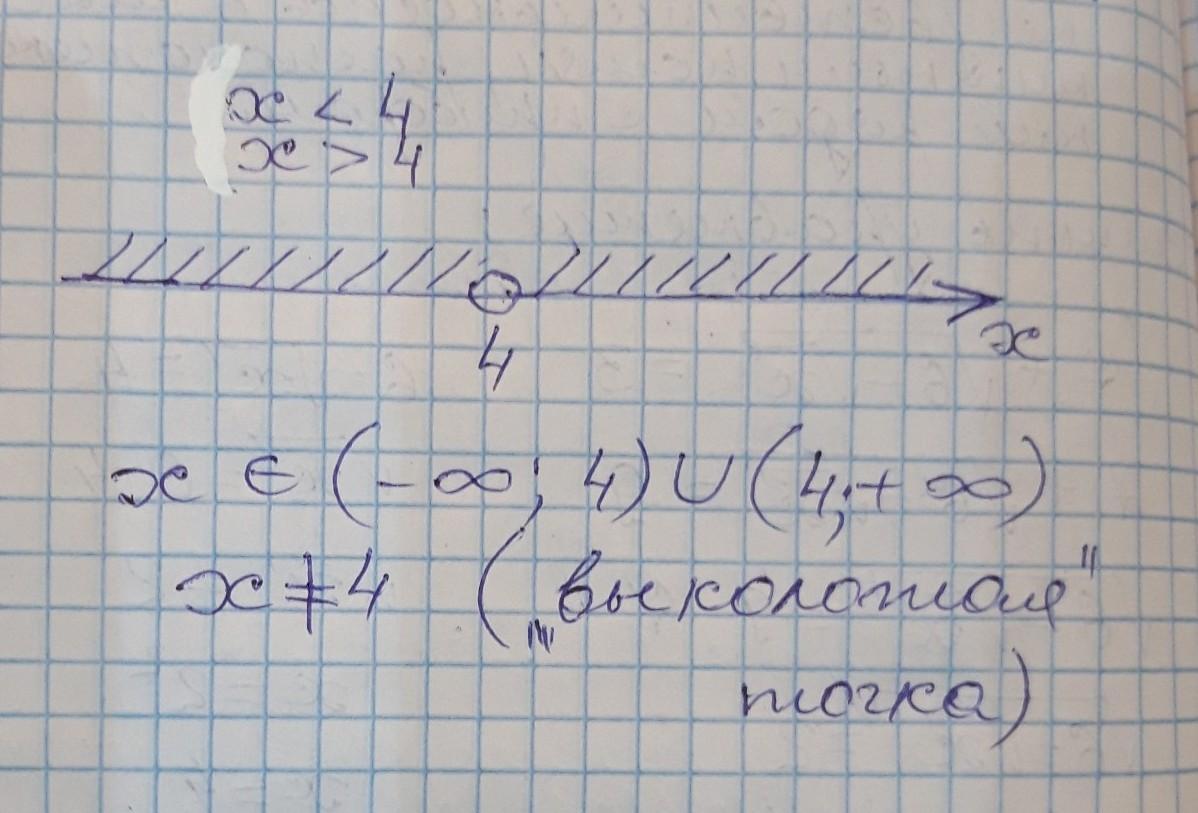 x < 4
x > 4
4
x
x ∈ (-∞; 4) ∪ (4; +∞)
x ≠ 4 („выколотая"
точка)